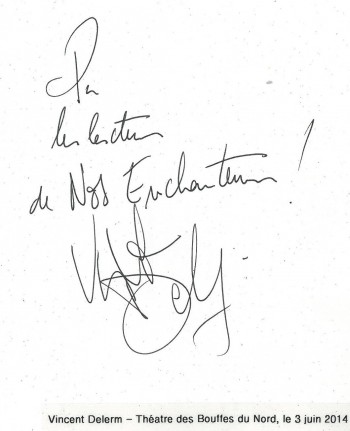 Pour
les lecteurs
de Nos Enchanteurs !
Vincent Delerm
Vincent Delerm – Théatre des Bouffes du Nord, le 3 juin 2014